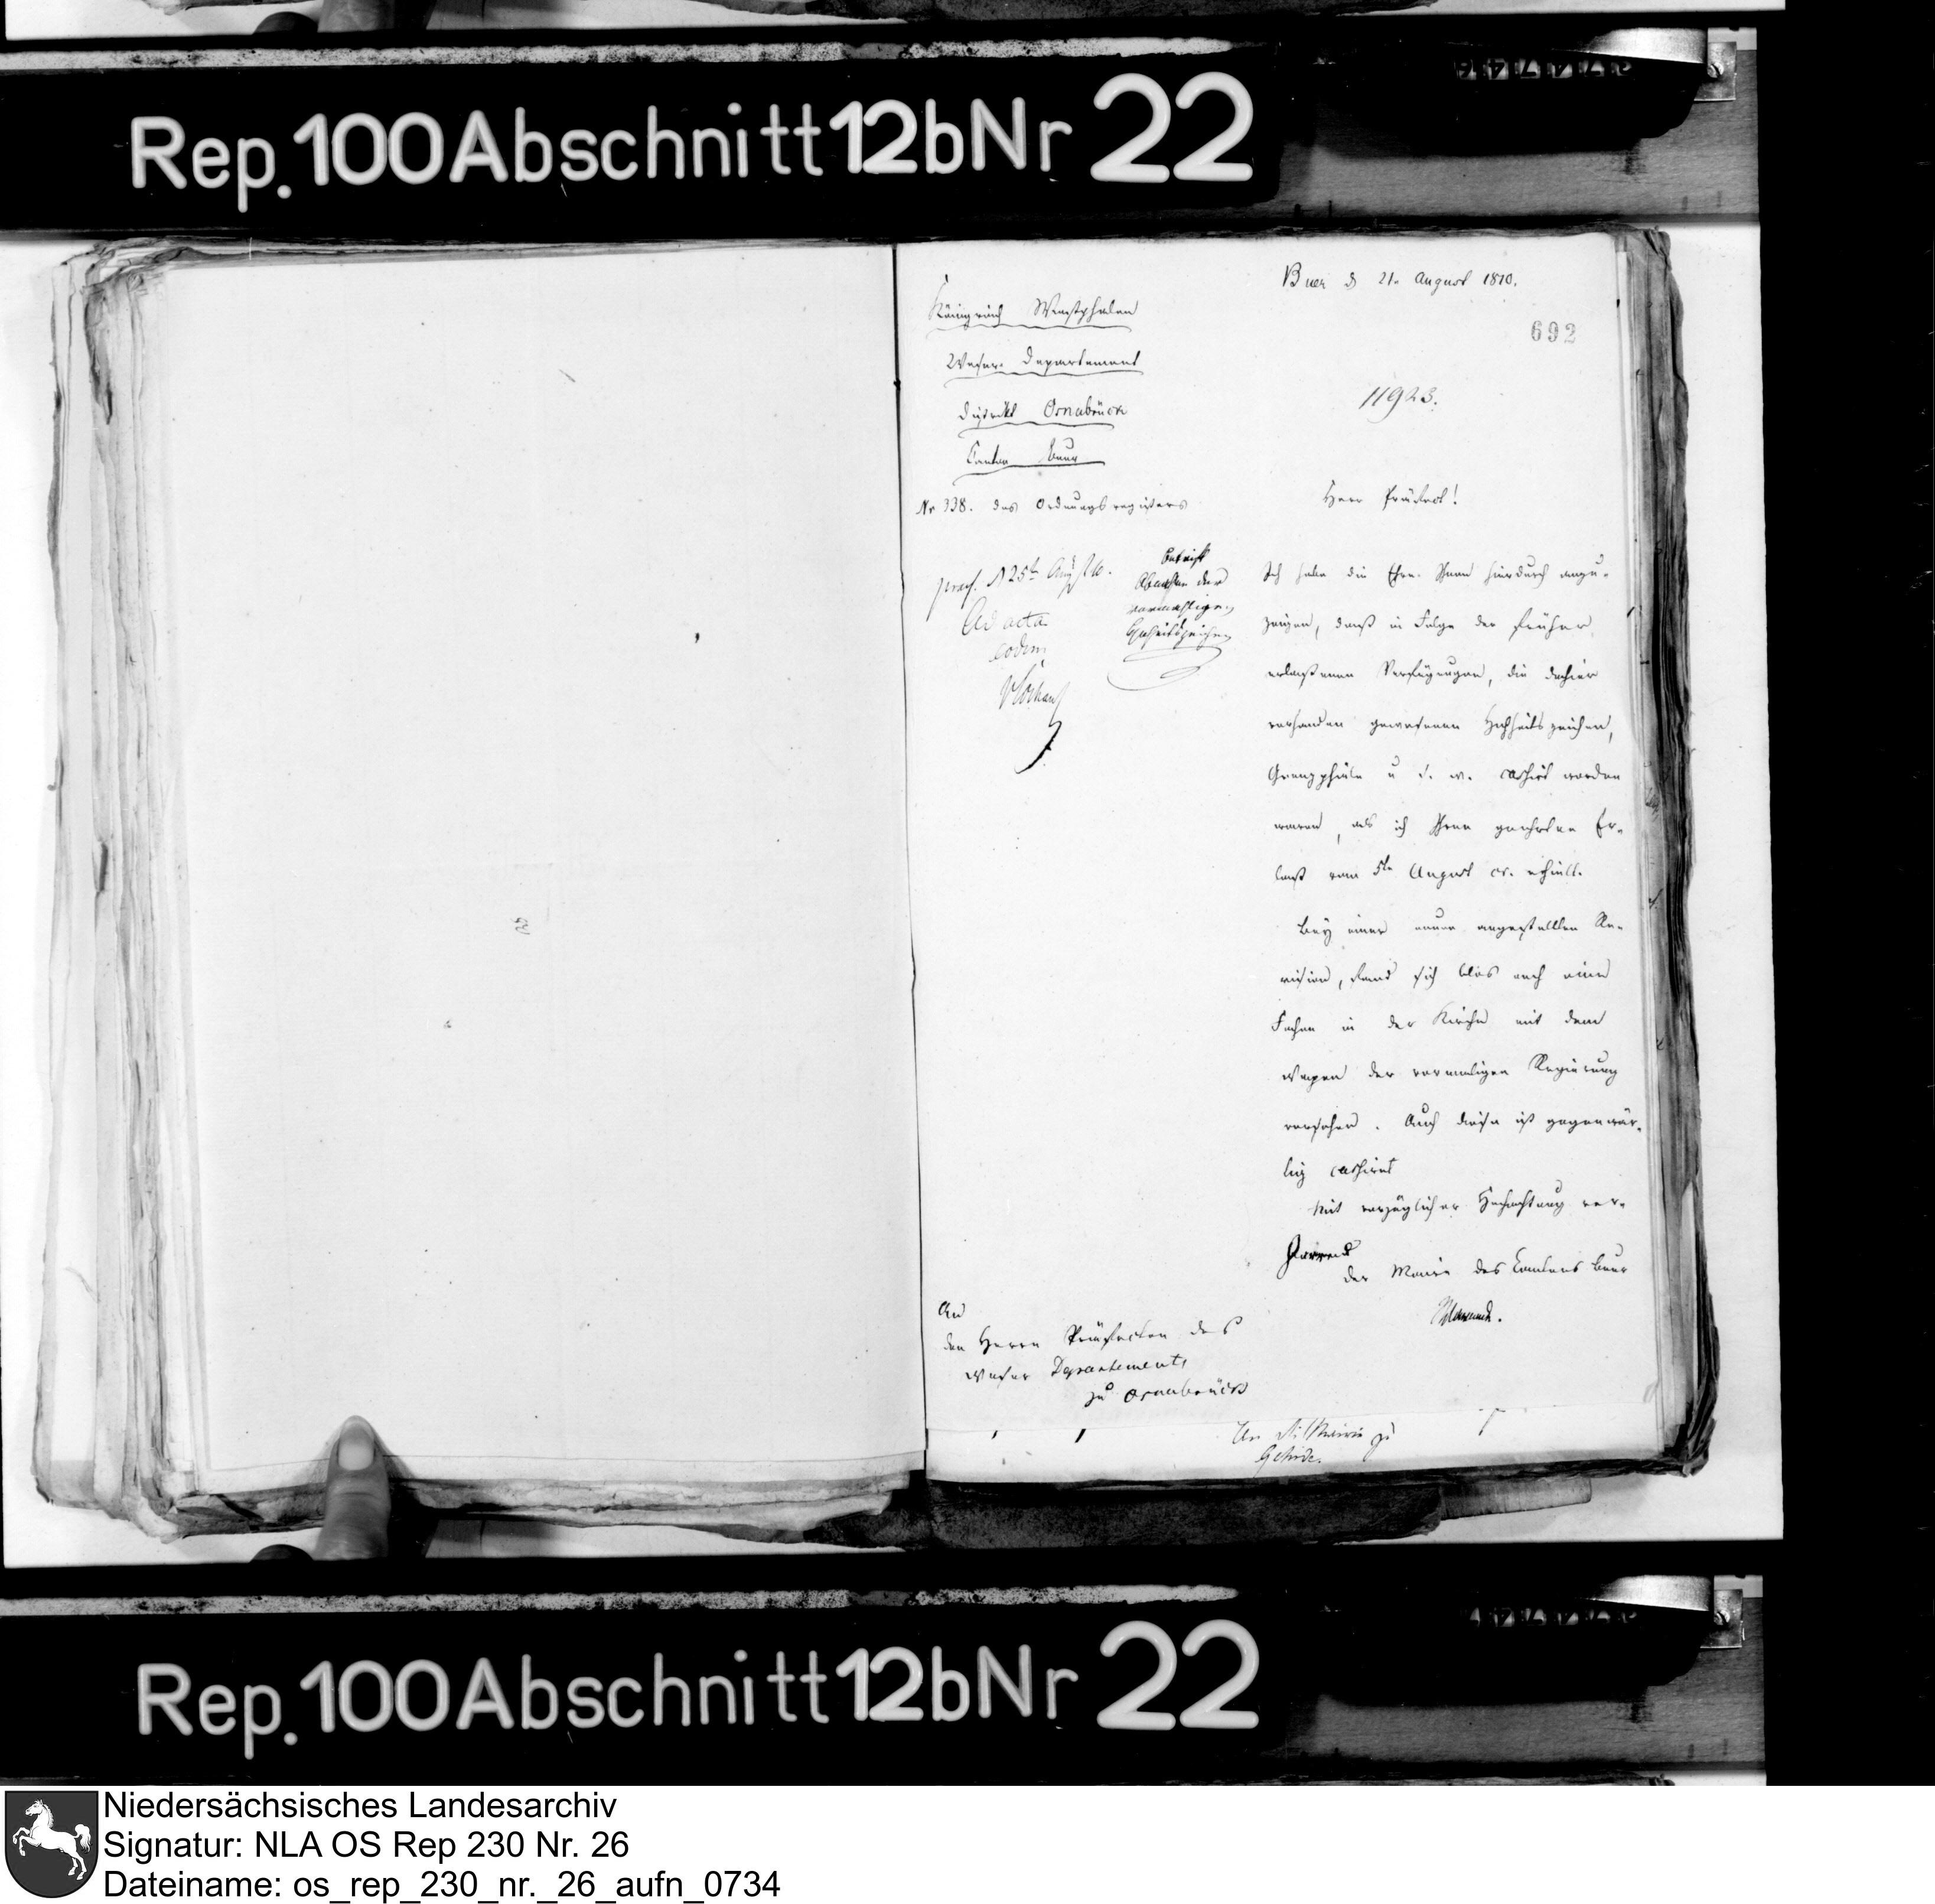 Rep. 100 Abschnitt 12b Nr 22
Buer d 21. August 1810.
692
Königreich Westphalen
Weser-Departement
District Osnabrück
Canton Buer
11923.
Nr 338. des Ordnungsregisters
Herr Präfect!
praes. d 25t Aug 1810.
Ad acta
eodem
betrift
Abnahme der
vormahligen
Hoheitszeichen
Ich habe die Ehre Ihnen hierdurch anzu-
zeigen, dasß in Folge der früher
erlasßenen Verfügungen, die dahier
vorhanden gewesenen Hochheitszeichen,
Grenzpfäle u s. w. cassirt worden
waren, als ich Ihren geehrten Er-
lasß vom 5ten August cr. erhielt.
Bey einer neuen angestellten Re-
vision, fand sich blos noch eine
Fahne in der Kirche mit dem
Wapen der vormaligen Regierung
versehen. Auch diese ist gegenwär-
tig cassiret
Mit vorzüglicher Hochachtung ver-
harrend
der Maire des Cantons Buer
An
den Herrn Präfecten des
Weser Departements
zu Osnabrück
An die Mairie zu
Gehrde.
Rep. 100 Abschnitt 12b Nr 22
Niedersächsisches Landesarchiv
Signatur: NLA OS Rep 230 Nr. 26
Dateiname: os_rep_230_nr._26_aufn_0734